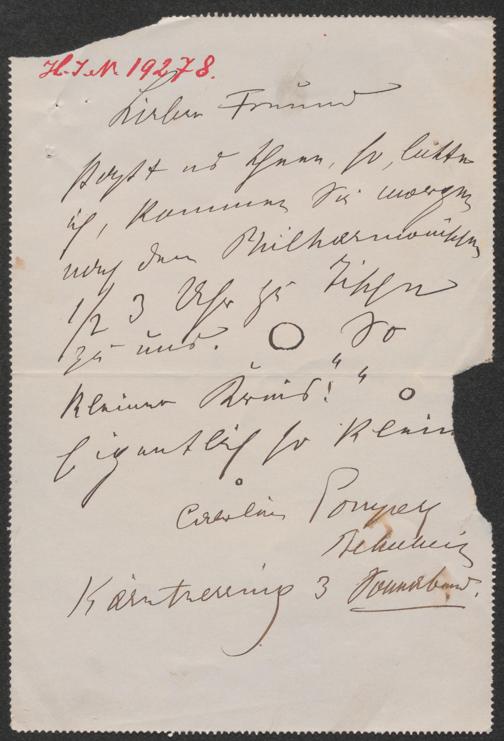 H.I.N. 19278.
Lieber Freund
paßt es Ihnen, so, bitte
ich, kommen Sie morgen
nach dem Philharmonischen
1/2 3 Uhr zu Tische
zu uns. So
kleiner Kreis!"
Eigentlich so klein
Caroline Gomperz
Bettelheim
Kärntnerring 3 Sonnabend.